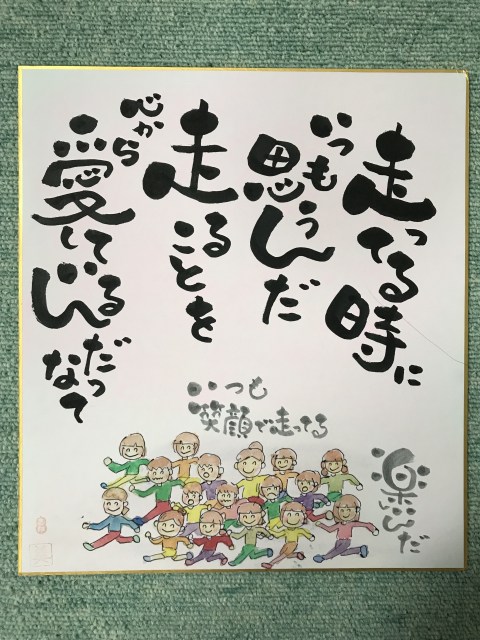 走ってる時に
いつも
思うんだ
走ることを
心から
愛して
いるんだなって
いつも
笑顔で走ってる
楽しんだ